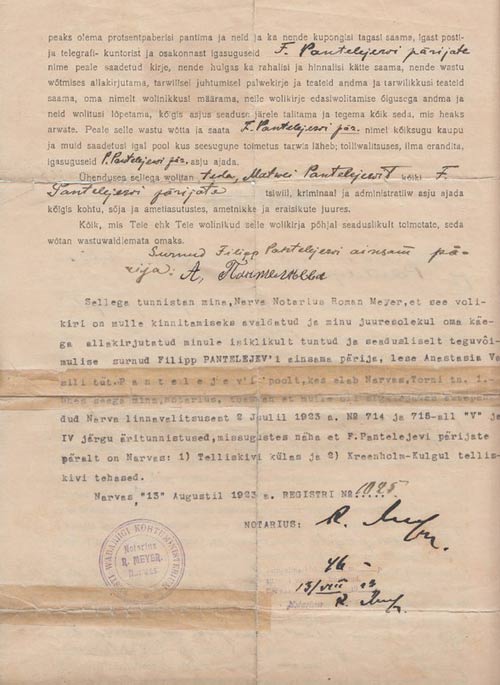 peaks olema protsentpaberisi pantima ja neid ja ka nende kupongisi tagasi saama, igast posti-
ja telegrafi- kuntorist ja osakonnast igasuguseid F. Pantelejewi pärijate
nime peale saadetud kirje, nende hulgas ka rahalisi ja hinnalisi kätte saama, nende wastu
wõtmises allakirjutama, tarwilisel juhtumisel palwekirje ja teateid andma ja tarwilikkusi teateid
saama, oma nimelt wolinikkusi määrama, neile wolikirje edasiwolitamise õigusega andma ja
neid wolitusi lõpetama, kõigis asjus seaduse järele talitama ja tegema kõik seda, mis heaks
arwate. Peale selle wastu wõtta ja saata F. Pantelejewi pär. nimel kõiksugu kaupu
ja muid saadetusi igal pool kus seesugune toimetus tarwis läheb; tolliwalitsuses, ilma erandita,
igasuguseid F. Pantelejewi pär. asju ajada.
Ühenduses sellega wolitan teda, Matwei Pantelejewit kõiki F.
Pantelejewi pärijate tsiwiil, kriminaal ja administratiiw asju ajada
kõigis kohtu, sõja ja ametiasutustes, ametnikke ja eraisikute juures.
Kõik, mis Teie ehk Teie wolinikud selle wolikirja põhjal seaduslikult toimetate, seda
wõtan wastuwaidlemata omaks.
Surnud Filipp Pantelejewi ainsam pä-
rija: А. Пантелеева
Sellega tunnistan mina, Narva Notarius Roman Meyer, et see voli-
kiri on mulle kinnitamiseks avaldatud ja minu juuresolekul oma käe-
ga allakirjutatud minule isiklikult tuntud ja seadusliselt teguvõi-
mulise surnud Filipp PANTELEJEV'i einsama pärija, lese Anastasia Va
sili tüt. Pantelejev'i poolt, kes elab Narvas, Torni tn. 1.-
ühes seega mina, notarius,
dud Narva linnavelitsusest 2 Juulil 1923 a. № 714 ja 715-all "V" ja
IV järgu äritunnistused, missugustes näha et F. Pantelejevi pärijate
päralt on Narvas: 1) Telliskivi külas ja 2) Kreenholm-Kulgul tellis-
kivi tehased.
Narvas, "13" Augustil 1923 a. REGISTRI № 1025
NOTARIUS: R. Meyer.
EESTI WABARIIGI KOHTUMINISTEERIUM
Notarius
R. MEYER.
Narwas
46 -
13/VIII 23
Notarius R. Meyer.